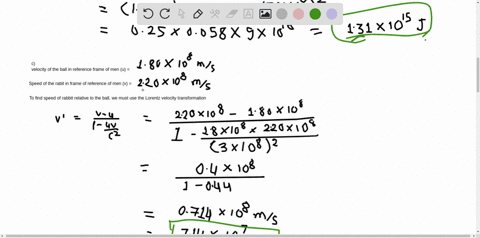 = (1.
= 0.25 × 0.058 × 9 × 10 = 1.31 × 10^15 J
c)
velocity of the ball in reference frame of men (u) = 1.80 × 10^8 m/s
Speed of the rabit in frame of reference of men (v) = 2.20 × 10^8 m/s
To find speed of rabbit relative to the ball, we must use the Lorentz velocity transformation
v' = (v-u)/(1 - uv/c^2) = (2.20×10^8 - 1.80×10^8)/(1 - (1.8×10^8 × 2.20×10^8)/(3×10^8)^2)
= (0.4 × 10^8)/(1 - 0.44)
= 0.714 × 10^8 m/s